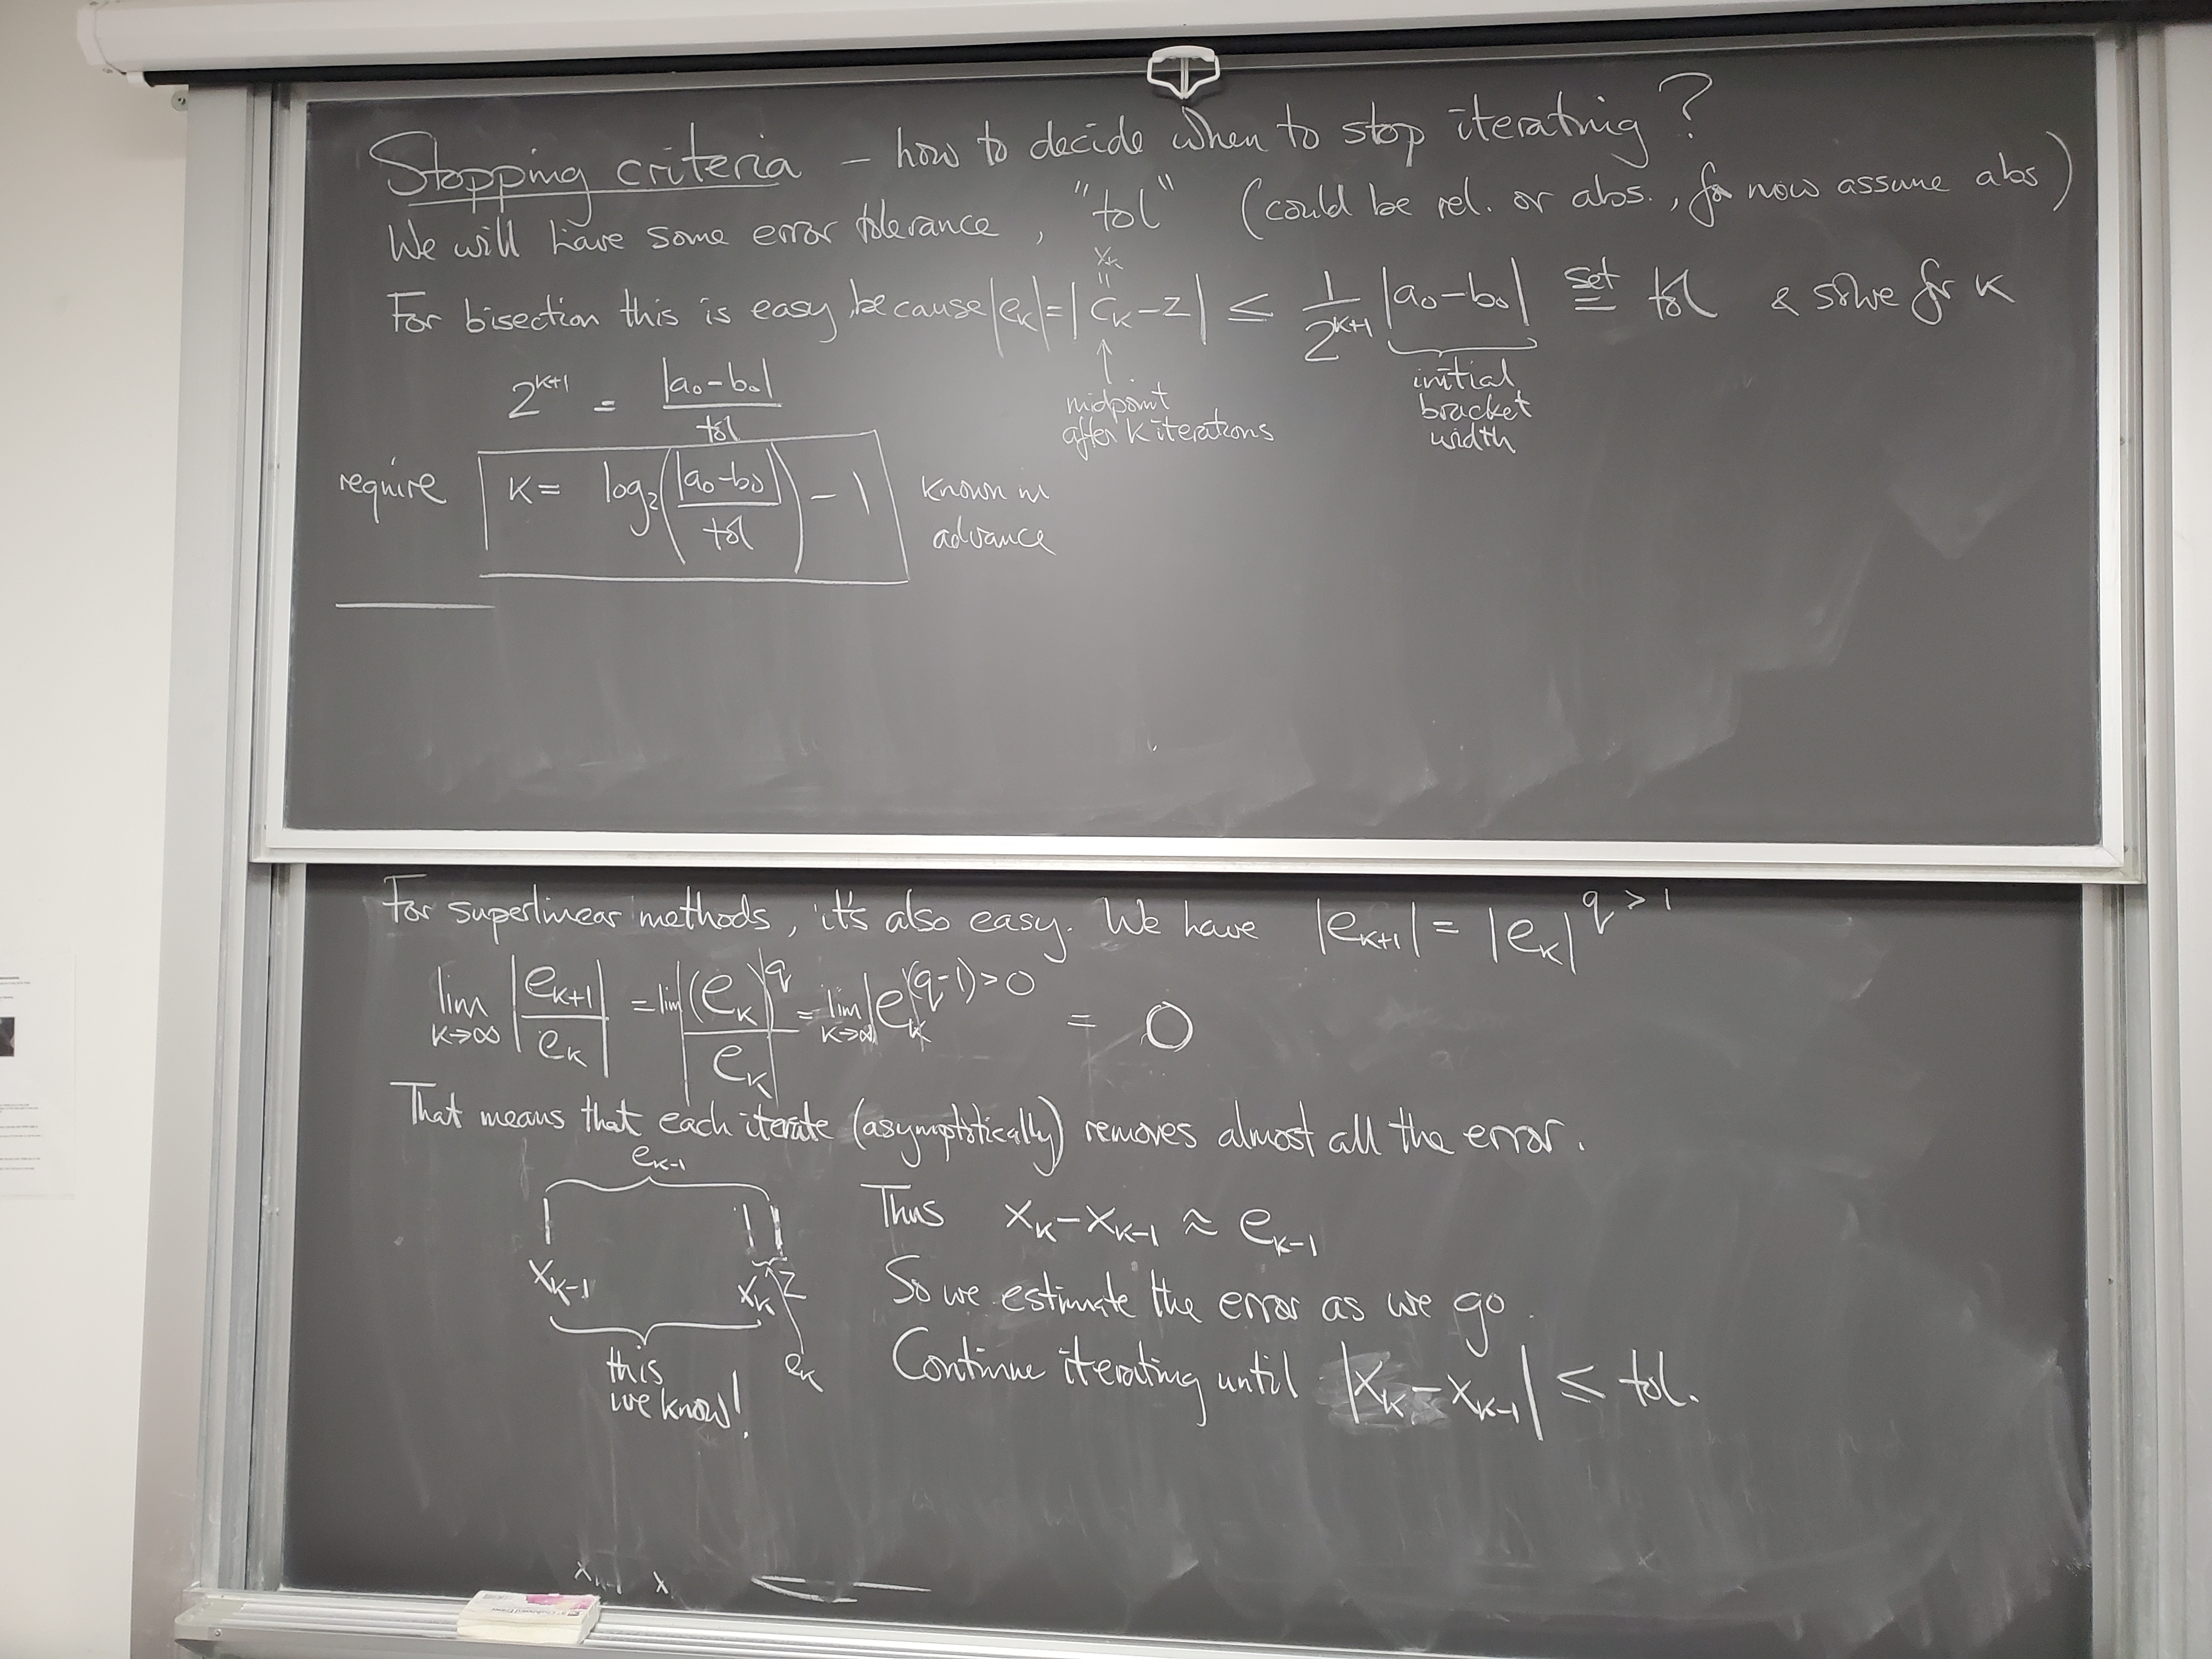 Stopping criteria – how to decide when to stop iterating?
We will have some error tolerance, "tol" (could be rel. or abs., for now assume abs)
x_k
=
For bisection this is easy, because |e_k| = |c_k - z| ≤ 1/2^{k+1} |a_0 - b_0| set = tol & solve for k
↑ midpoint
after k iterations
initial
bracket
width
2^{k+1} = |a_0 - b_0| / tol
require k = log_2(|a_0 - b_0| / tol) - 1 known in
advance
For superlinear methods, it's also easy. We have |e_{k+1}| = |e_k|^{q > 1}
lim_{k→∞} |e_{k+1} / e_k| = lim |(e_k)^q / e_k| = lim_{k→∞} |e_k|^{(q-1) > 0} = 0
That means that each iterate (asymptotically) removes almost all the error.
e_{k-1}
x_{k-1} x_k z
this
we know!
e_k
Thus x_k - x_{k-1} ≈ e_{k-1}
So we estimate the error as we go.
Continue iterating until |x_k - x_{k-1}| ≤ tol.